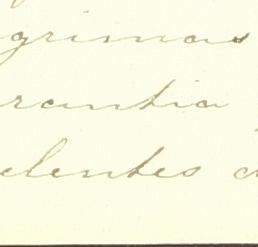 grimas
rantia
elentes